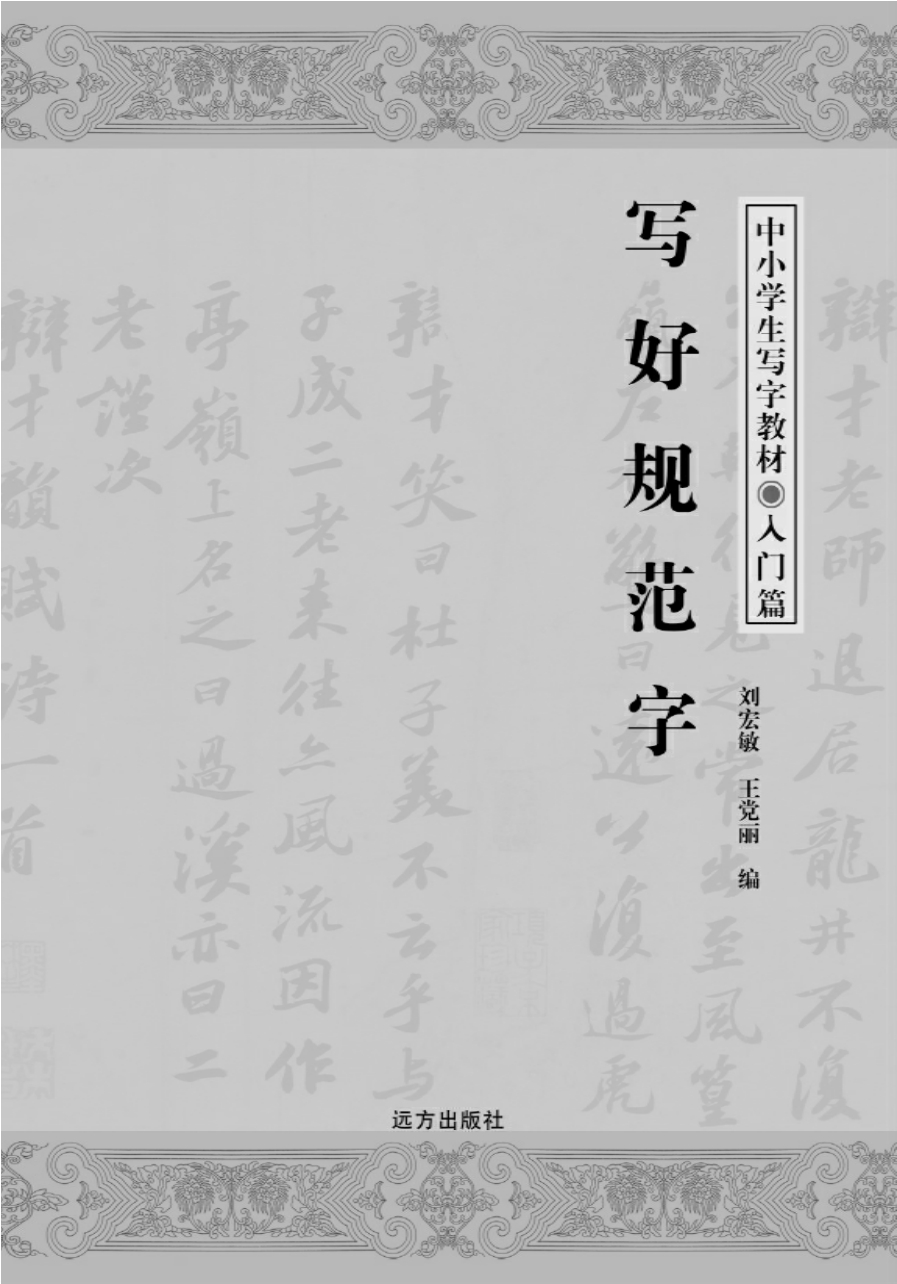 中小学生写字教材◉入门篇
写好规范字
刘宏敏 王党丽 编
远方出版社
辩才老師退居龍井不復
出至風篁
遠公復過虎
辩才笑曰杜子美不云乎与
子成二老来往亦風流因作
亭嶺上名之曰過溪亦曰二
老謹次
辩才韻賦诗一首